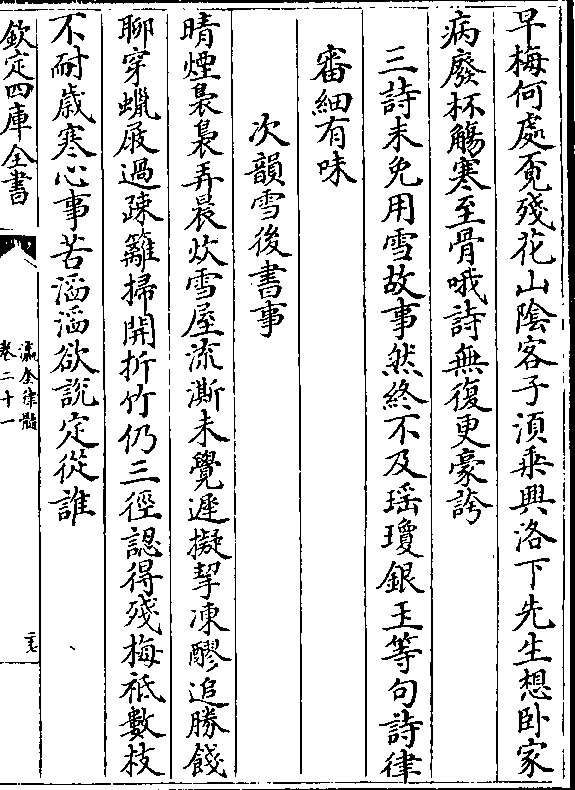 早梅何處覔殘花山陰客子湏乗興洛下先生想卧家
病廢杯觴寒至骨哦詩無復更豪誇
三詩未免用雪故事然終不及瑶瓊銀玉等句詩律
審細有味
次韻雪後書事
晴煙裊裊弄晨炊雪屋流澌未覺遲擬挈凍醪追勝餞
聊穿蠟屐過疎籬掃開折竹仍三徑認得殘梅祗數枝
不耐歳寒心事苦滔滔欲說定從誰
欽定四庫全書
瀛奎律髓
卷二十一